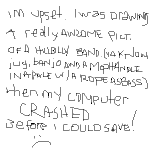 im upset. I was DRAWING
A really AWSOME PICT.
OF A HUBLY BAND (YAK, JOW
jug, banjo AND A MOP HANDLE
IN A PALE w/ A ROPE AS BASS)
when my computer
CRASHED
Before I COULD SAVE!